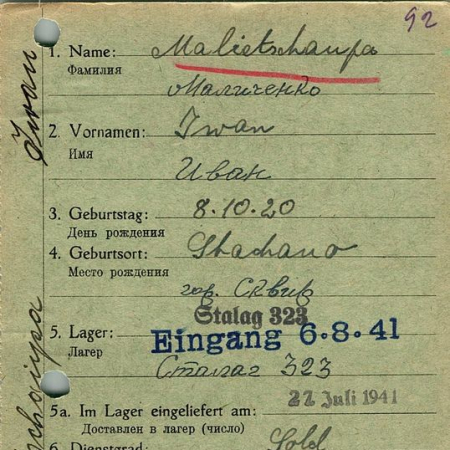 92
1. Name: Malietschanpa
Фамилия
Маличенко
2. Vornamen: Iwan
Имя
Иван
3. Geburtstag: 8.10.20
День рождения
4. Geburtsort:
Место рождения
гор.
Stalag 323
5. Lager: Eingang 6.8.41
Лагер
Сталаг 323
22 Juli 1941
5a. Im Lager eingeliefert am:
Доставлен в лагер (число)
6. Dienstgrad: Sold
Iwan